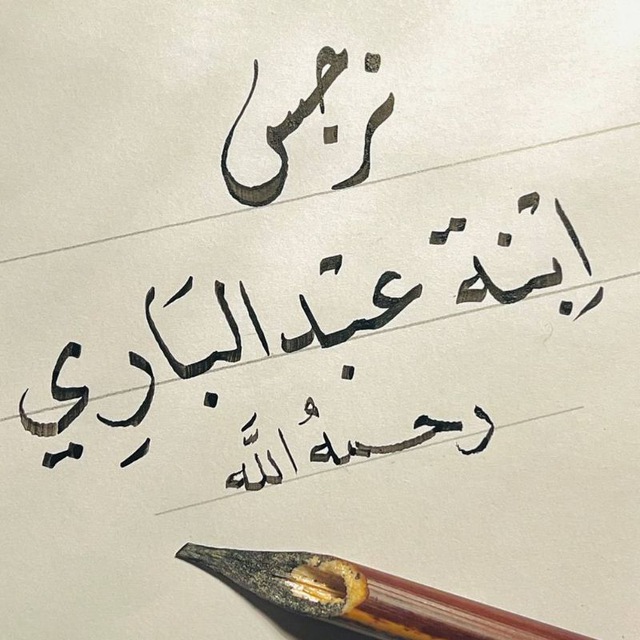 نرجس
اِبْنة عبْدالبَارِي
رحمهُ اللَّه